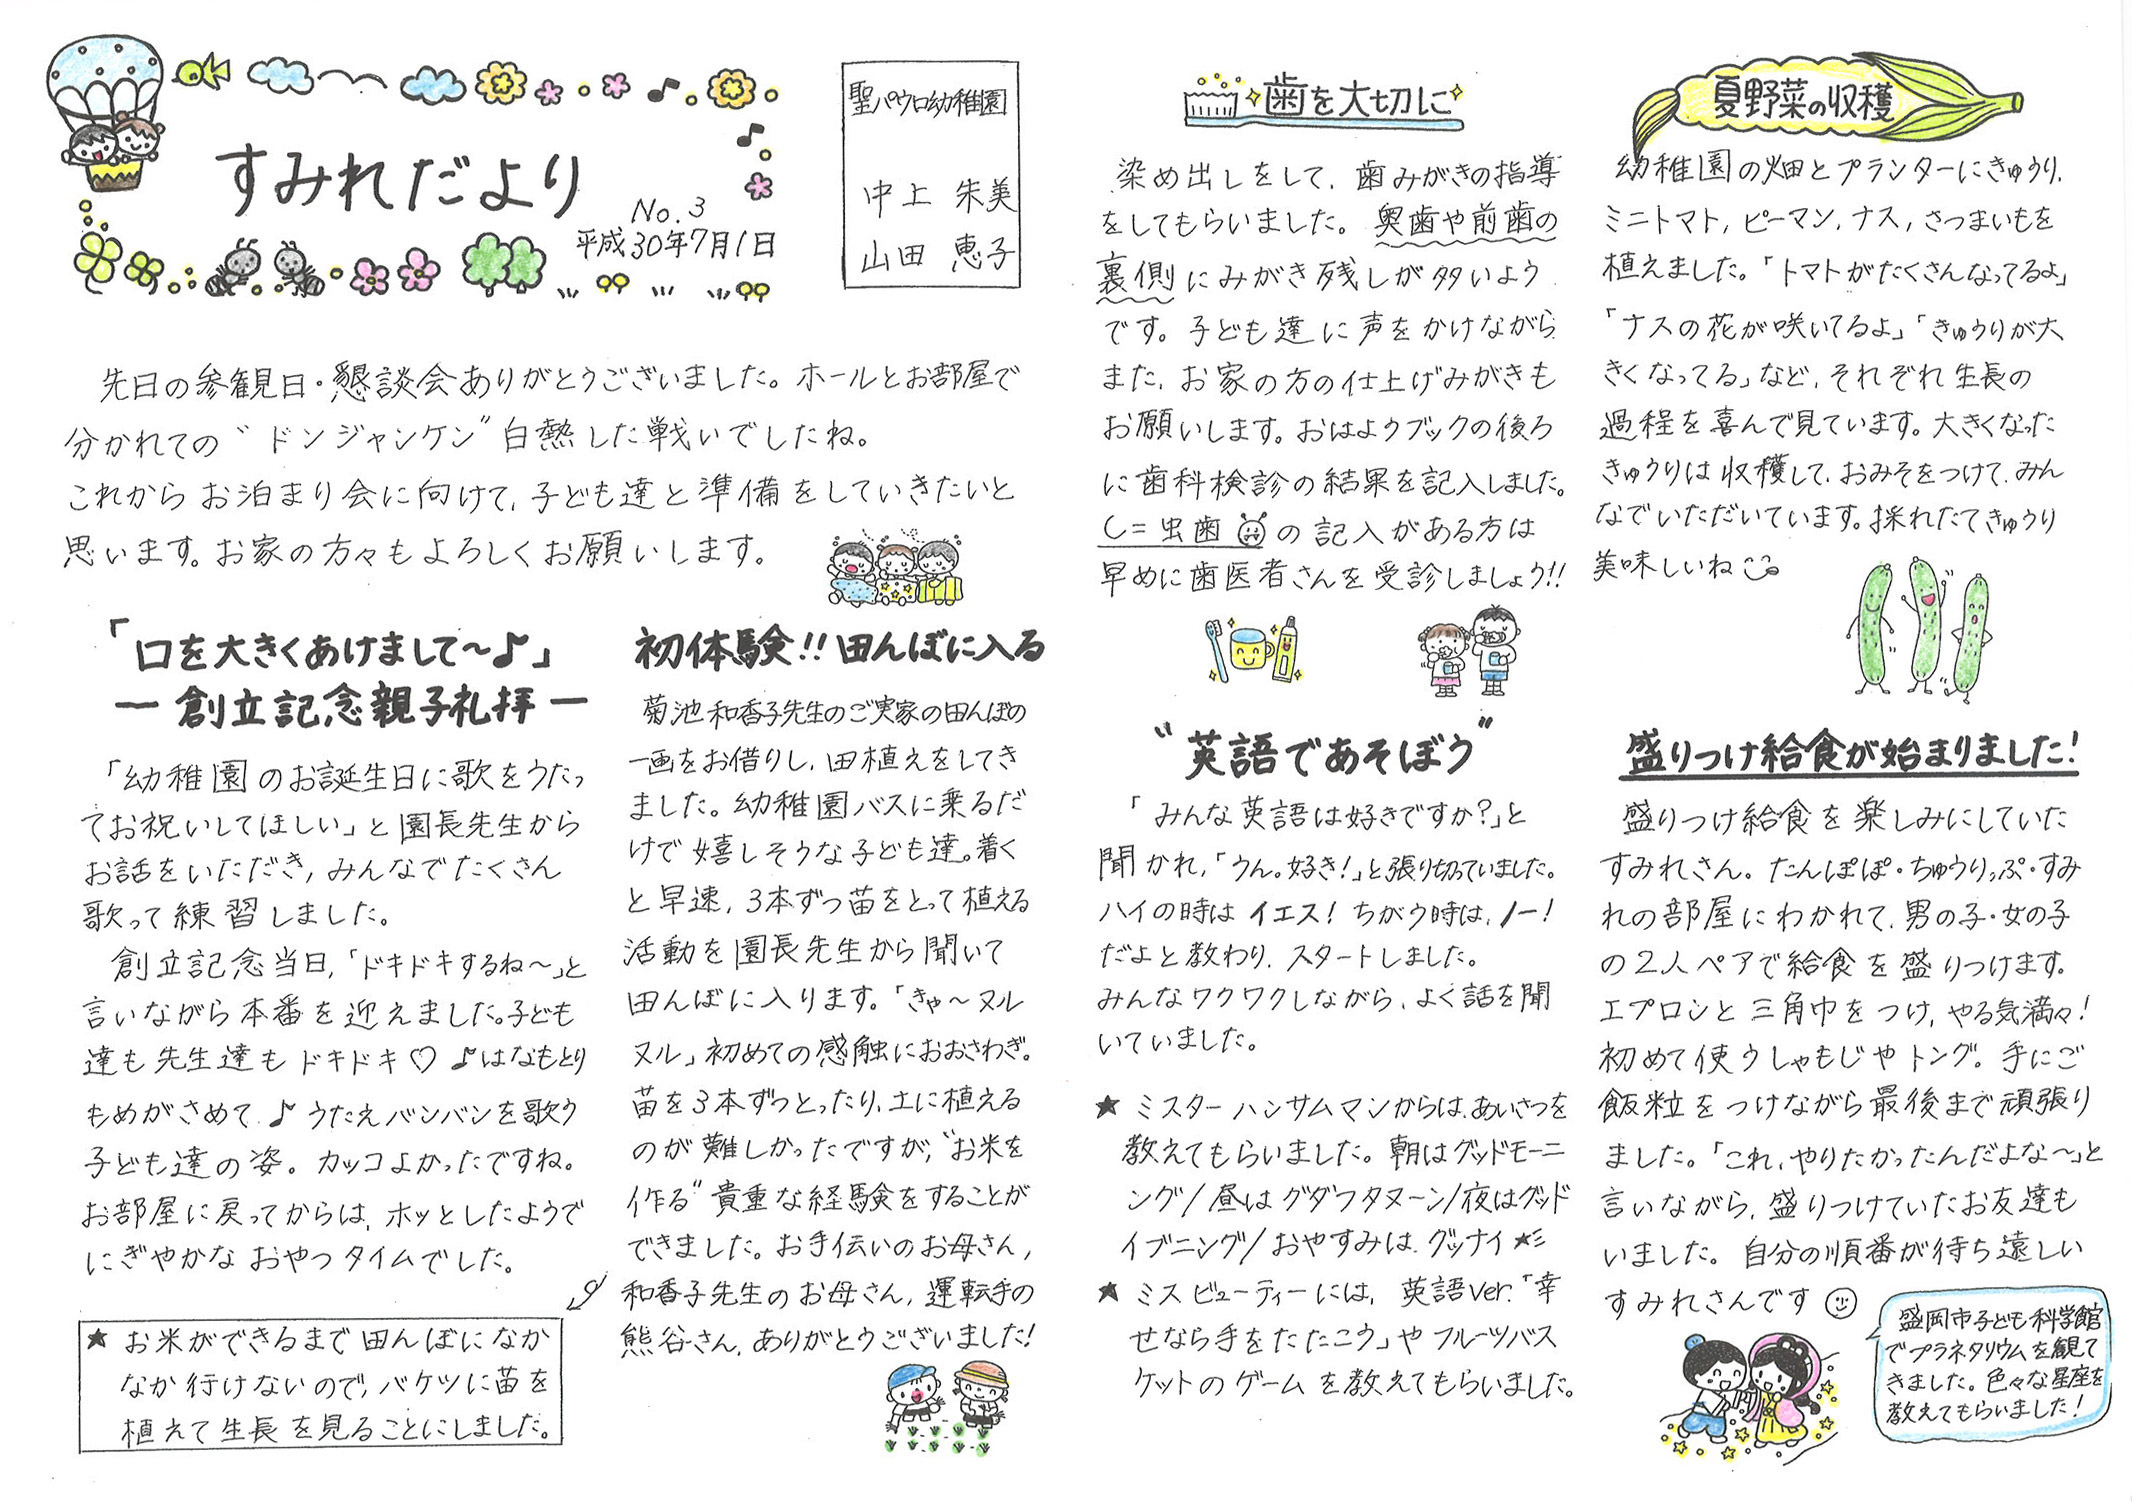 すみれだより
No.3
平成30年7月1日
聖パウロ幼稚園
中上 朱美
山田 恵子
先日の参観日・懇談会ありがとうございました。ホールとお部屋で
分かれての〝ドンジャンケン〟白熱した戦いでしたね。
これからお泊まり会に向けて、子ども達と準備をしていきたいと
思います。お家の方々もよろしくお願いします。
「口を大きくあけまして〜♪」
― 創立記念親子礼拝 ―
「幼稚園のお誕生日に歌をうたっ
てお祝いしてほしい」と園長先生から
お話をいただき、みんなでたくさん
歌って練習しました。
創立記念当日、「ドキドキするね〜」と
言いながら本番を迎えました。子ども
達も先生達もドキドキ♡♪はなもとり
もめがさめて♪うたえバンバンを歌う
子ども達の姿。カッコよかったですね。
お部屋に戻ってからは、ホッとしたようで
にぎやかなおやつタイムでした。
初体験!!田んぼに入る
菊池和香子先生のご実家の田んぼの
一画をお借りし、田植えをしてき
ました。幼稚園バスに乗るだ
けで嬉しそうな子ども達。着く
と早速、3本ずつ苗をとって植える
活動を園長先生から聞いて
田んぼに入ります。「きゃ〜ヌル
ヌル」初めての感触におおさわぎ。
苗を3本ずつとったり、土に植える
のが難しかったですが、〝お米を
作る〟貴重な経験をすることが
できました。お手伝いのお母さん、
和香子先生のお母さん、運転手の
熊谷さん、ありがとうございました!
★お米ができるまで田んぼになか
なか行けないので、バケツに苗を
植えて生長を見ることにしました。
歯を大切に
染め出しをして、歯みがきの指導
をしてもらいました。奥歯や前歯の
裏側にみがき残しが多いよう
です。子ども達に声をかけながら
また、お家の方の仕上げみがきも
お願いします。おはようブックの後ろ
に歯科検診の結果を記入しました。
C=虫歯の記入がある方は
早めに歯医者さんを受診しましょう!!
〝英語であそぼう〟
「みんな英語は好きですか?」と
聞かれ、「うん。好き!」と張り切っていました。
ハイの時はイエス!ちがう時は、ノー!
だよと教わり、スタートしました。
みんなワクワクしながら、よく話を聞
いていました。
★ミスターハンサムマンからは、あいさつを
教えてもらいました。朝はグッドモーニ
ング/昼はグダフタヌーン/夜はグッド
イブニング/おやすみは、グッナイ★彡
★ミスビューティーには、英語ver.「幸
せなら手をたたこう」やフルーツバス
ケットのゲームを教えてもらいました。
夏野菜の収穫
幼稚園の畑とプランターにきゅうり、
ミニトマト、ピーマン、ナス、さつまいもを
植えました。「トマトがたくさんなってるよ」
「ナスの花が咲いてるよ」「きゅうりが大
きくなってる」など、それぞれ生長の
過程を喜んで見ています。大きくなった
きゅうりは収穫して、おみそをつけて、みん
なでいただいています。採れたてきゅうり
美味しいね
盛りつけ給食が始まりました!
盛りつけ給食を楽しみにしていた
すみれさん。たんぽぽ・ちゅうりっぷ・すみ
れの部屋にわかれて、男の子・女の子
の2人ペアで給食を盛りつけます。
エプロンと三角巾をつけ、やる気満々!
初めて使うしゃもじやトング。手にご
飯粒をつけながら最後まで頑張り
ました。「これ、やりたかったんだよな〜」と
言いながら、盛りつけていたお友達も
いました。自分の順番が待ち遠しい
すみれさんです
盛岡市子ども科学館
でプラネタリウムを観て
きました。色々な星座を
教えてもらいました!